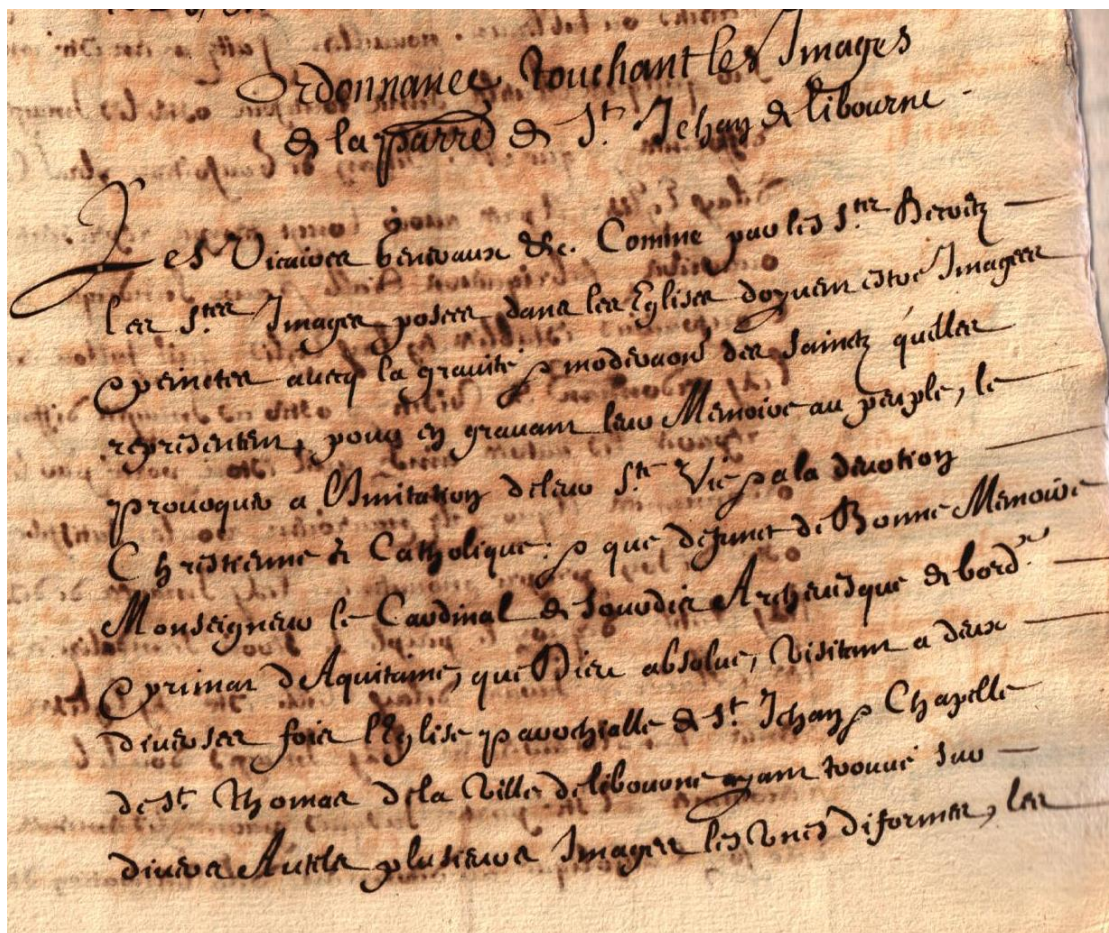 Ordonnance touchant les Images
de la parre de St. Jehan de libourne
Les Vicaires Generaux &c. Comme par les Sts. Decretz
les Stes Images posees dans les Eglises doyuent estre Imagees
& peinctes avecq la grauité & moderaon des Sainctz qu'elles
representent, pour en grauant leur Memoire au peuple, le
prouoquer a l'Imitation de leur Ste Vie & a la deuotion
Chrestienne & Catholique; & que defunct de Bonne Memoire
Monseigneur le Cardinal de Sourdis Archeuesque de bordx
& primat d'Aquitaine, que Dieu absolue, visitant a deux
diuerses fois l'Eglise parochialle de St. Jehan & Chapelle
de St. Thomas de la Ville de libourne ayant trouué sur
diuers Autels plusieurs Images les vnes diformes, les